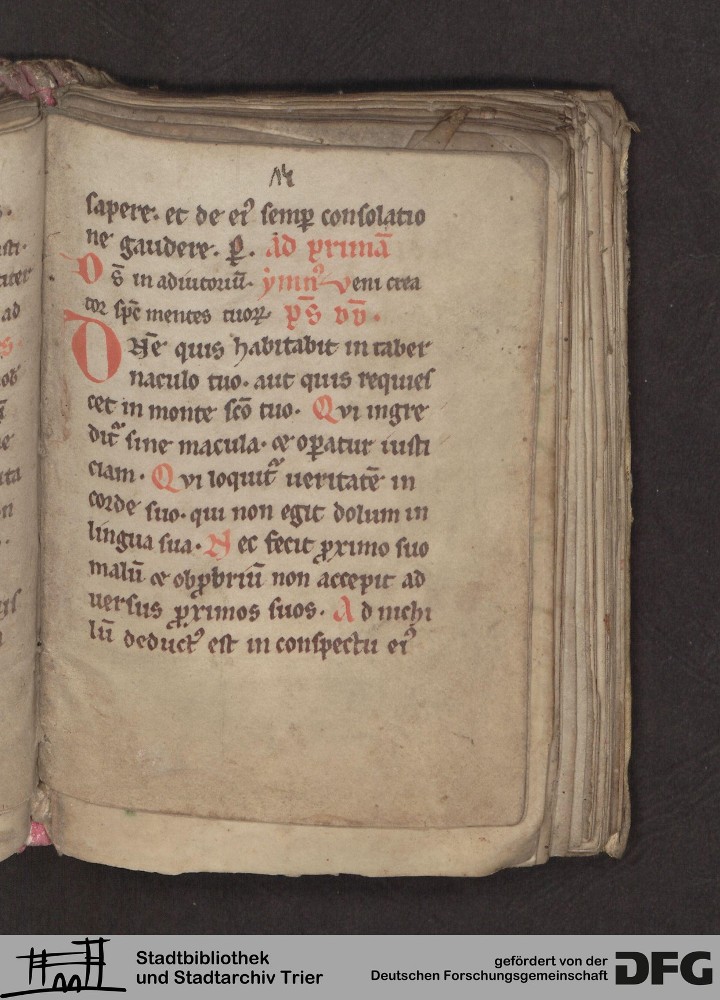 14
sapere. et de eiꝰ semꝑ consolatio
ne gaudere. ꝑ. Ad primā
Ds̄ in adiutoriū. ymnꝰ Veni crea
tor sp̄c mentes tuoꝝ p̄s dd̄.
DNē quis habitabit in taber
naculo tuo. aut quis requies
cet in monte sc̄o tuo. Qvi ingre
dit᷑ sine macula. ⁊ oꝑatur iusti
ciam. Qvi loquit᷑ ueritatē in
corde suo. qui non egit dolum in
lingua sua. Nec fecit ꝓximo suo
malū ⁊ obꝓbriū non accepit ad
uersus ꝓximos suos. Ad nichi
lū deductꝰ est in conspectu eiꝰ
Stadtbibliothek
und Stadtarchiv Trier
gefördert von der
Deutschen Forschungsgemeinschaft
DFG